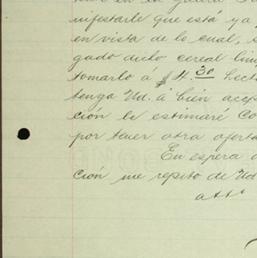 ifestarle que está ya
en vista de lo cual, s
gado dicho cereal lim
tomarlo a $ 11.30 hect
tenga Ud. á bien acep
ción le estimaré Co
por tener otra oferta
En espera d
ción me repito de Ud
atto